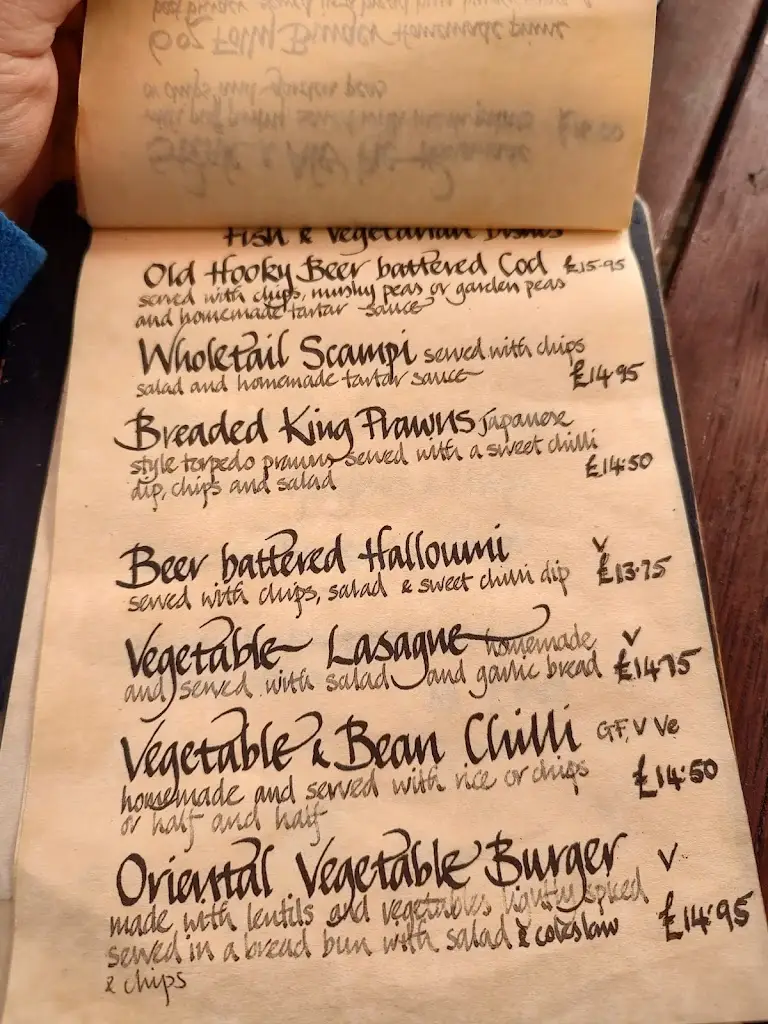 Fish & Vegetarian Dishes
Old Hooky Beer battered Cod £15.95
served with chips, mushy peas or garden peas
and homemade tartar sauce
Wholetail Scampi served with chips
salad and homemade tartar sauce £14.95
Breaded King Prawns Japanese
style torpedo prawns served with a sweet chilli
dip, chips and salad £14.50
Beer battered Halloumi V
served with chips, salad & sweet chilli dip £13.75
Vegetable Lasagne homemade V
and served with salad and garlic bread £14.75
Vegetable & Bean Chilli GF, V Ve
homemade and served with rice or chips £14.50
or half and half
Oriental Vegetable Burger V
made with lentils and vegetables lightly spiced
served in a bread bun with salad & coleslaw £14.95
& chips